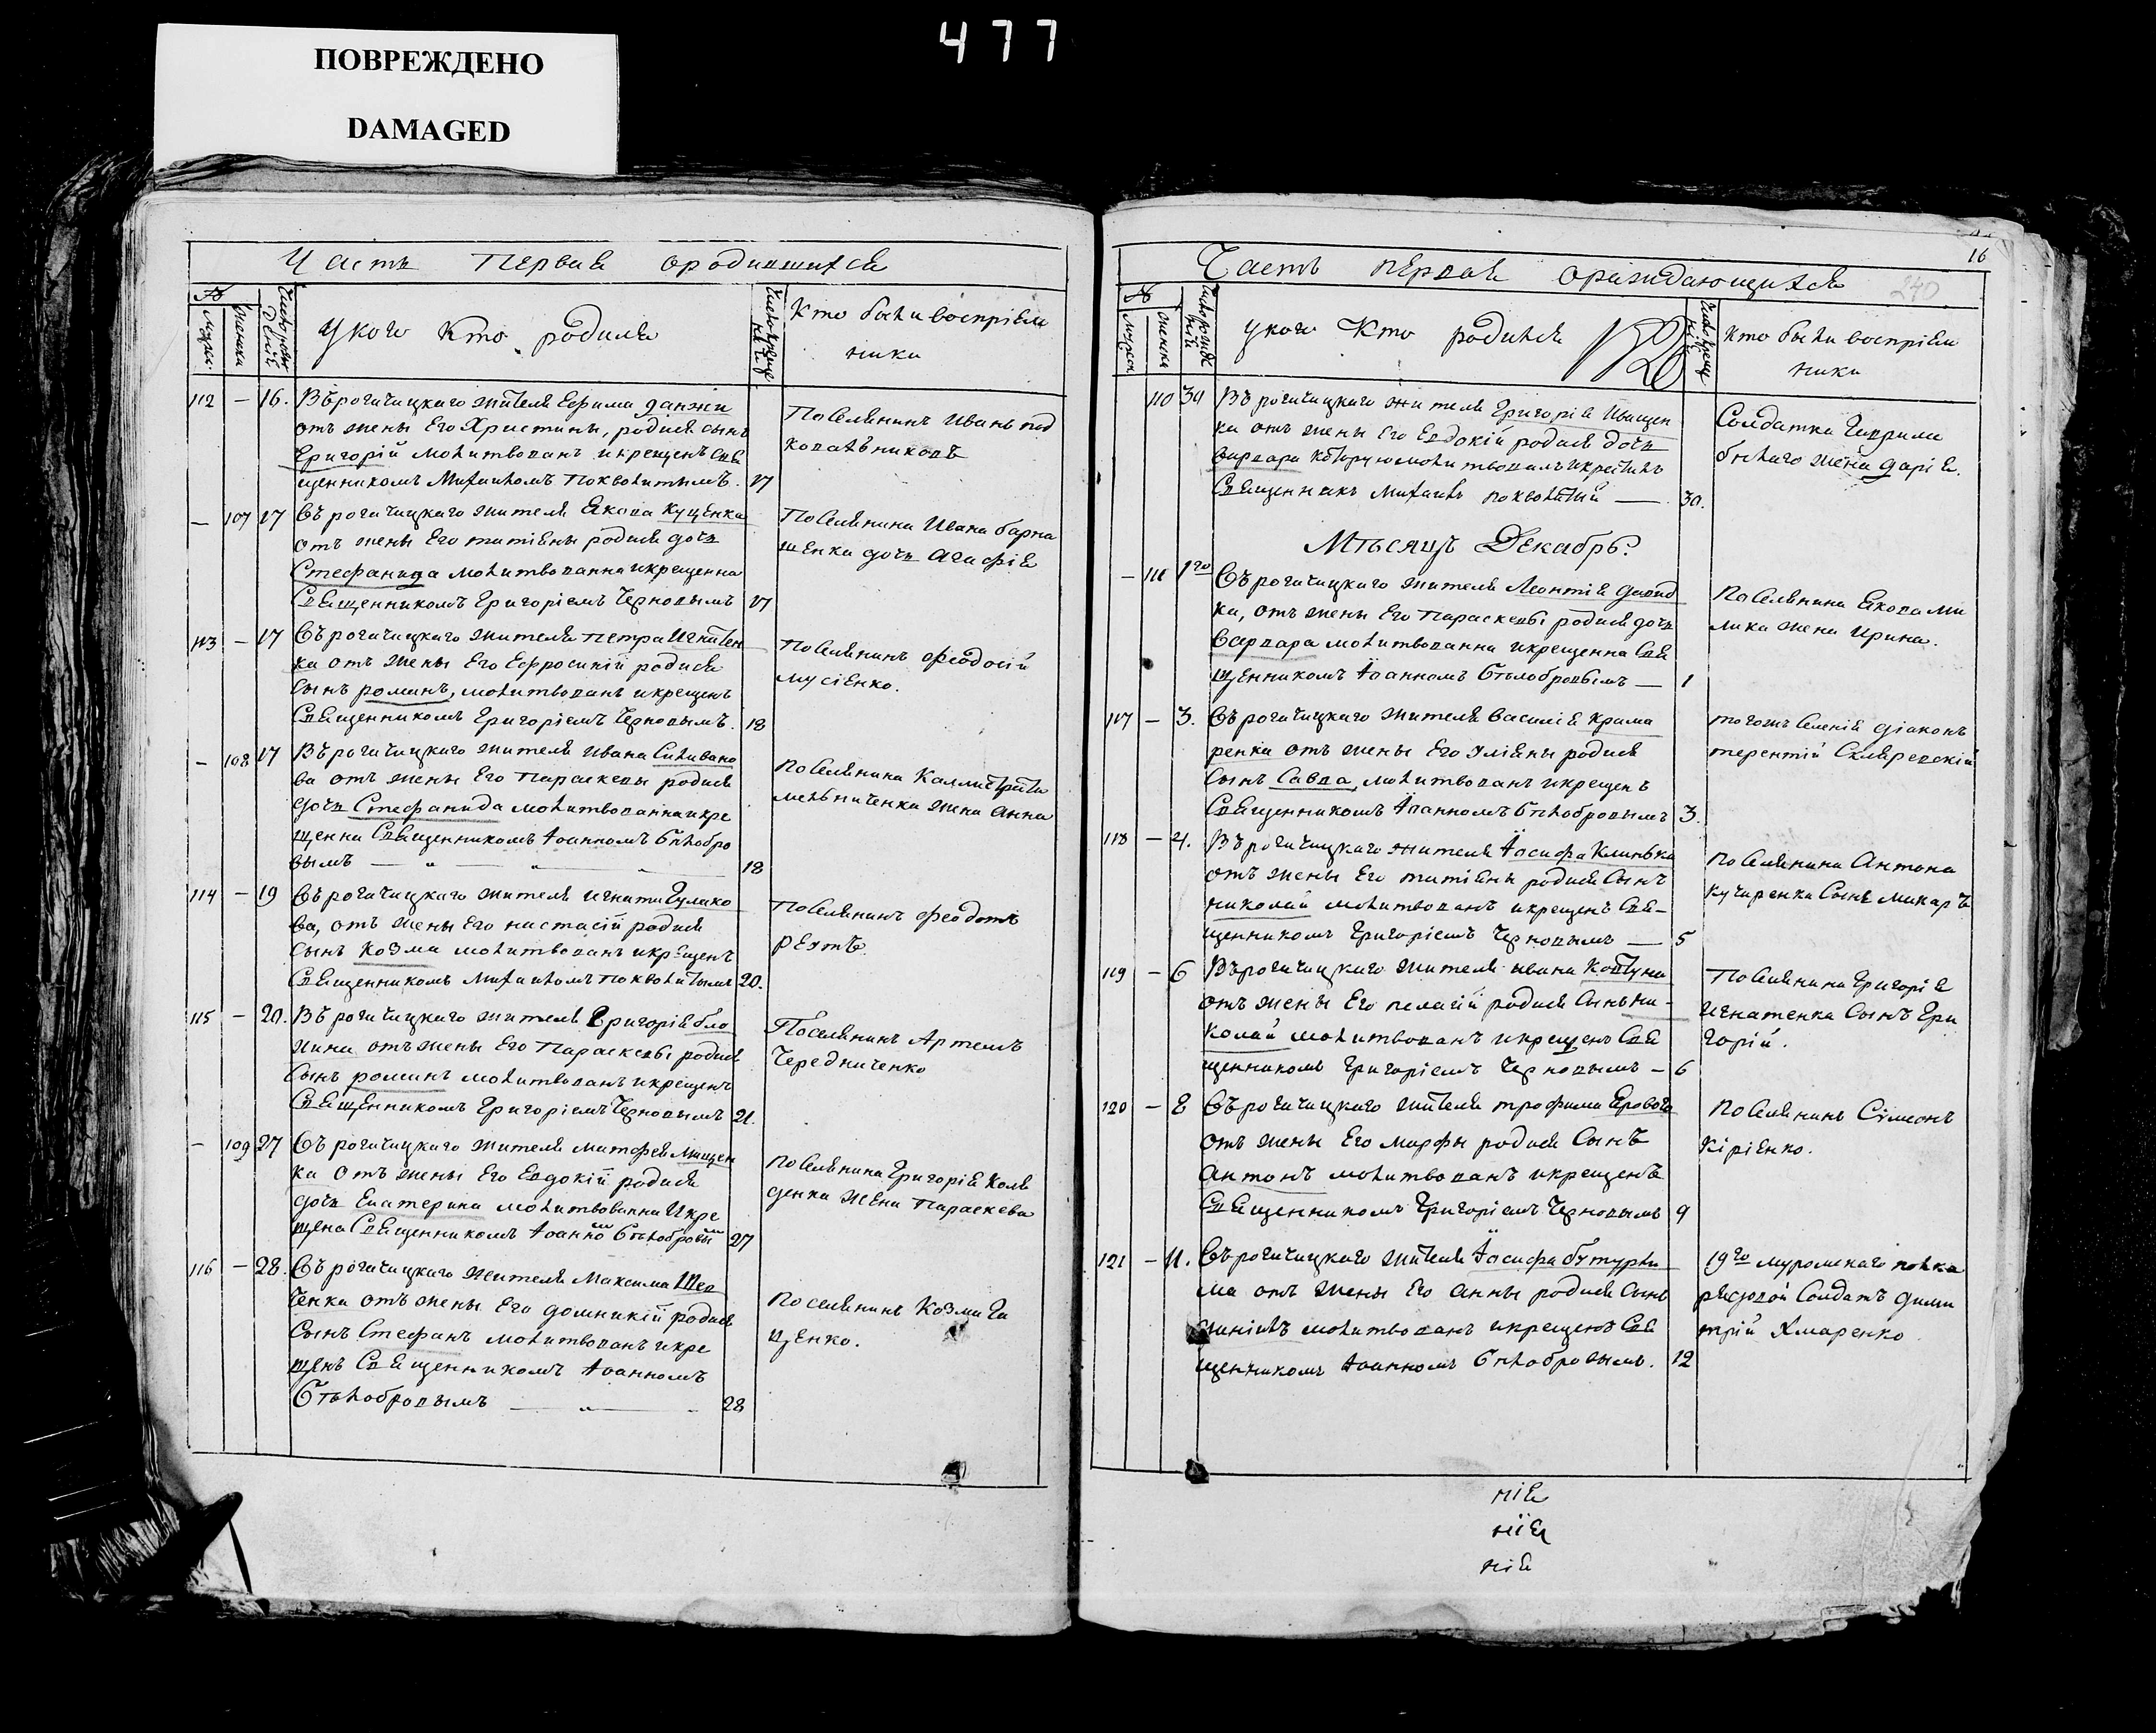 477
ПОВРЕЖДЕНО
DAMAGED
Часть Первая ородившихся
№
мужес:
женска
Число рожденій
У кого Кто родился
Кто были воспріем
ники
112 — 16. Въ рогачицкаго жителя Ефима данжи
отъ жены Его Христины, родился сынъ
Григорій молитвованъ и крещенъ Свя
щенникомъ Михаиломъ Поквалитымъ. 17
Поселянинъ Иванъ под
ковальниковъ
— 107 17 Въ рогачицкаго жителя Якова Куценка
отъ жены Его татіяны родися дочь
Стефанида молитвованна и крещенна
Священникомъ Григоріемъ Черновымъ 17
Поселянина Ивана барна
шенка дочь Агафія
113 — 17 Въ рогачицкаго жителя Петра Игнатен
ка отъ жены Его Ефросиніи родися
сынъ романъ, молитвованъ и крещенъ
Священникомъ Григоріемъ Черновымъ. 18
Поселянинъ Феодосій
мусіенко.
— 108 17 Въ рогачицкаго жителя Ивана Силивано
ва отъ жены Его Параскевы родися
дочь Стефанида молитвованна и кре
щенна Священникомъ Іоанномъ Бѣлобро
вымъ — „ — „ — 18
Поселянина Каллистрата
мельниченка жена Анна
114 — 19 Въ рогачицкаго жителя Игната Гулако
ва, отъ жены Его настасіи родися
сынъ Козма молитвованъ и крещенъ
Священникомъ Михаиломъ Поквалитымъ 20.
Поселянинъ Феодотъ
реутъ
115 — 20. Въ рогачицкаго жителя Григорія бло
хина отъ жены Его Параскевы родися
Сынъ романъ молитвованъ и крещенъ
Священникомъ Григоріемъ Черновымъ 21.
Поселянинъ Артемъ
Чередниченко
— 109 27 Въ рогачицкаго жителя матфея Мищен
ка отъ жены Его Евдокіи родися
дочь Екатерина молитвованна и кре
щена Священникомъ Іоанномъ Бѣлобровымъ 27
Поселянина Григорія Коля
денка жена Параскева
116 — 28. Въ рогачицкаго жителя Максима Шев
ченка отъ жены Его домникіи родися
Сынъ Стефанъ молитвованъ и кре
щенъ Священникомъ Іоанномъ
Бѣлобровымъ — „ — 28
Поселянинъ Козма Га
ценко.
16
240
Часть первая ораждающихся
№
мужеск
женска
У кого Кто родился
Кто были воспріем
ники
110 30 Въ рогачицкаго жителя Григорія Иващен
ка отъ жены Его Евдокіи родися дочь
варвара которую молитвовалъ и крестилъ
Священникъ Михаилъ поквалитый — 30.
Солдатка Гаврила
бѣлаго жена дарія.
Мѣсяцъ Декабрь.
— 111 1го Въ рогачицкаго жителя Леонтія давид
ка, отъ жены Его Параскевы родися дочь
Варвара молитвованна и крещенна Свя
щенникомъ Іоанномъ Бѣлобровымъ — 1
Поселянина Якова Ми
лика жена Ирина.
117 — 3. Въ рогачицкаго жителя Василія Крама
ренка отъ жены Его Уліяны родися
Сынъ Савва, молитвованъ и крещенъ
Священникомъ Іоанномъ Бѣлобровымъ 3.
тогожъ Селенія діаконъ
терентій Скляревскій
118 — 4. Въ рогачицкаго жителя Іосифа Клинька
отъ жены Его татіяны родися Сынъ
николай молитвованъ и крещенъ Свя-
щенникомъ Григоріемъ Черновымъ — 5
Поселянина Антона
кучиренка Сынъ макаръ
119 — 6 Въ рогачицкаго жителя ивана Ковтуна
отъ жены Его пелагіи родися Сынъ ни-
колай молитвованъ и крещенъ Свя
щенникомъ Григоріемъ Черновымъ — 6
Поселянина Григорія
Игнатенка Сынъ Гри
горій.
120 — 8 Въ рогачицкаго жителя трофима Яровога
отъ жены Его марфы родися Сынъ
Антонъ молитвованъ и крещенъ
Священникомъ Григоріемъ Черновымъ 9
Поселянинъ Сімеонъ
Кіріенко.
121 — 11. Въ рогачицкаго жителя Іосифа бутурли
ма отъ жены Его Анны родися Сынъ
даніилъ молитвованъ и крещенъ Свя
щенникомъ Іоанномъ Бѣлобровымъ. 12
19го муромскаго полка
рядовой Солдатъ дими
трій Хмаренко
нія
нія
нія